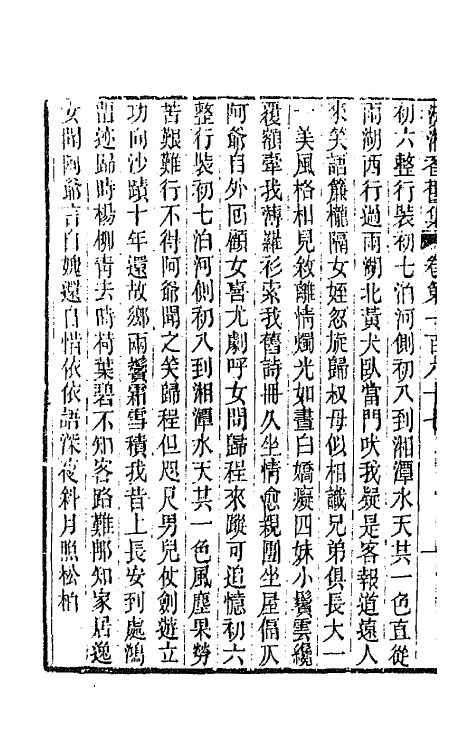 沅湘耆舊集 卷第一百六十七
初六整行裝初七泊河側初八到湘潭水天共一色直從
雨湖西行過雨湖北黃犬臥當門吠我疑是客報道遠人
來笑語簾櫳隔女姪忽旋歸叔母似相識兄弟俱長大一
一美風格相見敘離情燭光如晝白嬌癡四妹小鬢雲纔
覆額牽我薄羅衫索我舊詩冊久坐情愈親團坐屋偪仄
阿爺自外回顧女喜尤劇呼女問歸程來蹤可追憶初六
整行裝初七泊河側初八到湘潭水天共一色風塵果勞
苦艱難行不得阿爺聞之笑歸程但咫尺男兒仗劍遊立
功向沙蹟十年還故鄉兩鬢霜雪積我昔上長安到處鴻
畱迹歸時楊柳靑去時荷葉碧不知客路難那知家居逸
女聞阿爺言自媿還自惜依依語深夜斜月照松柏